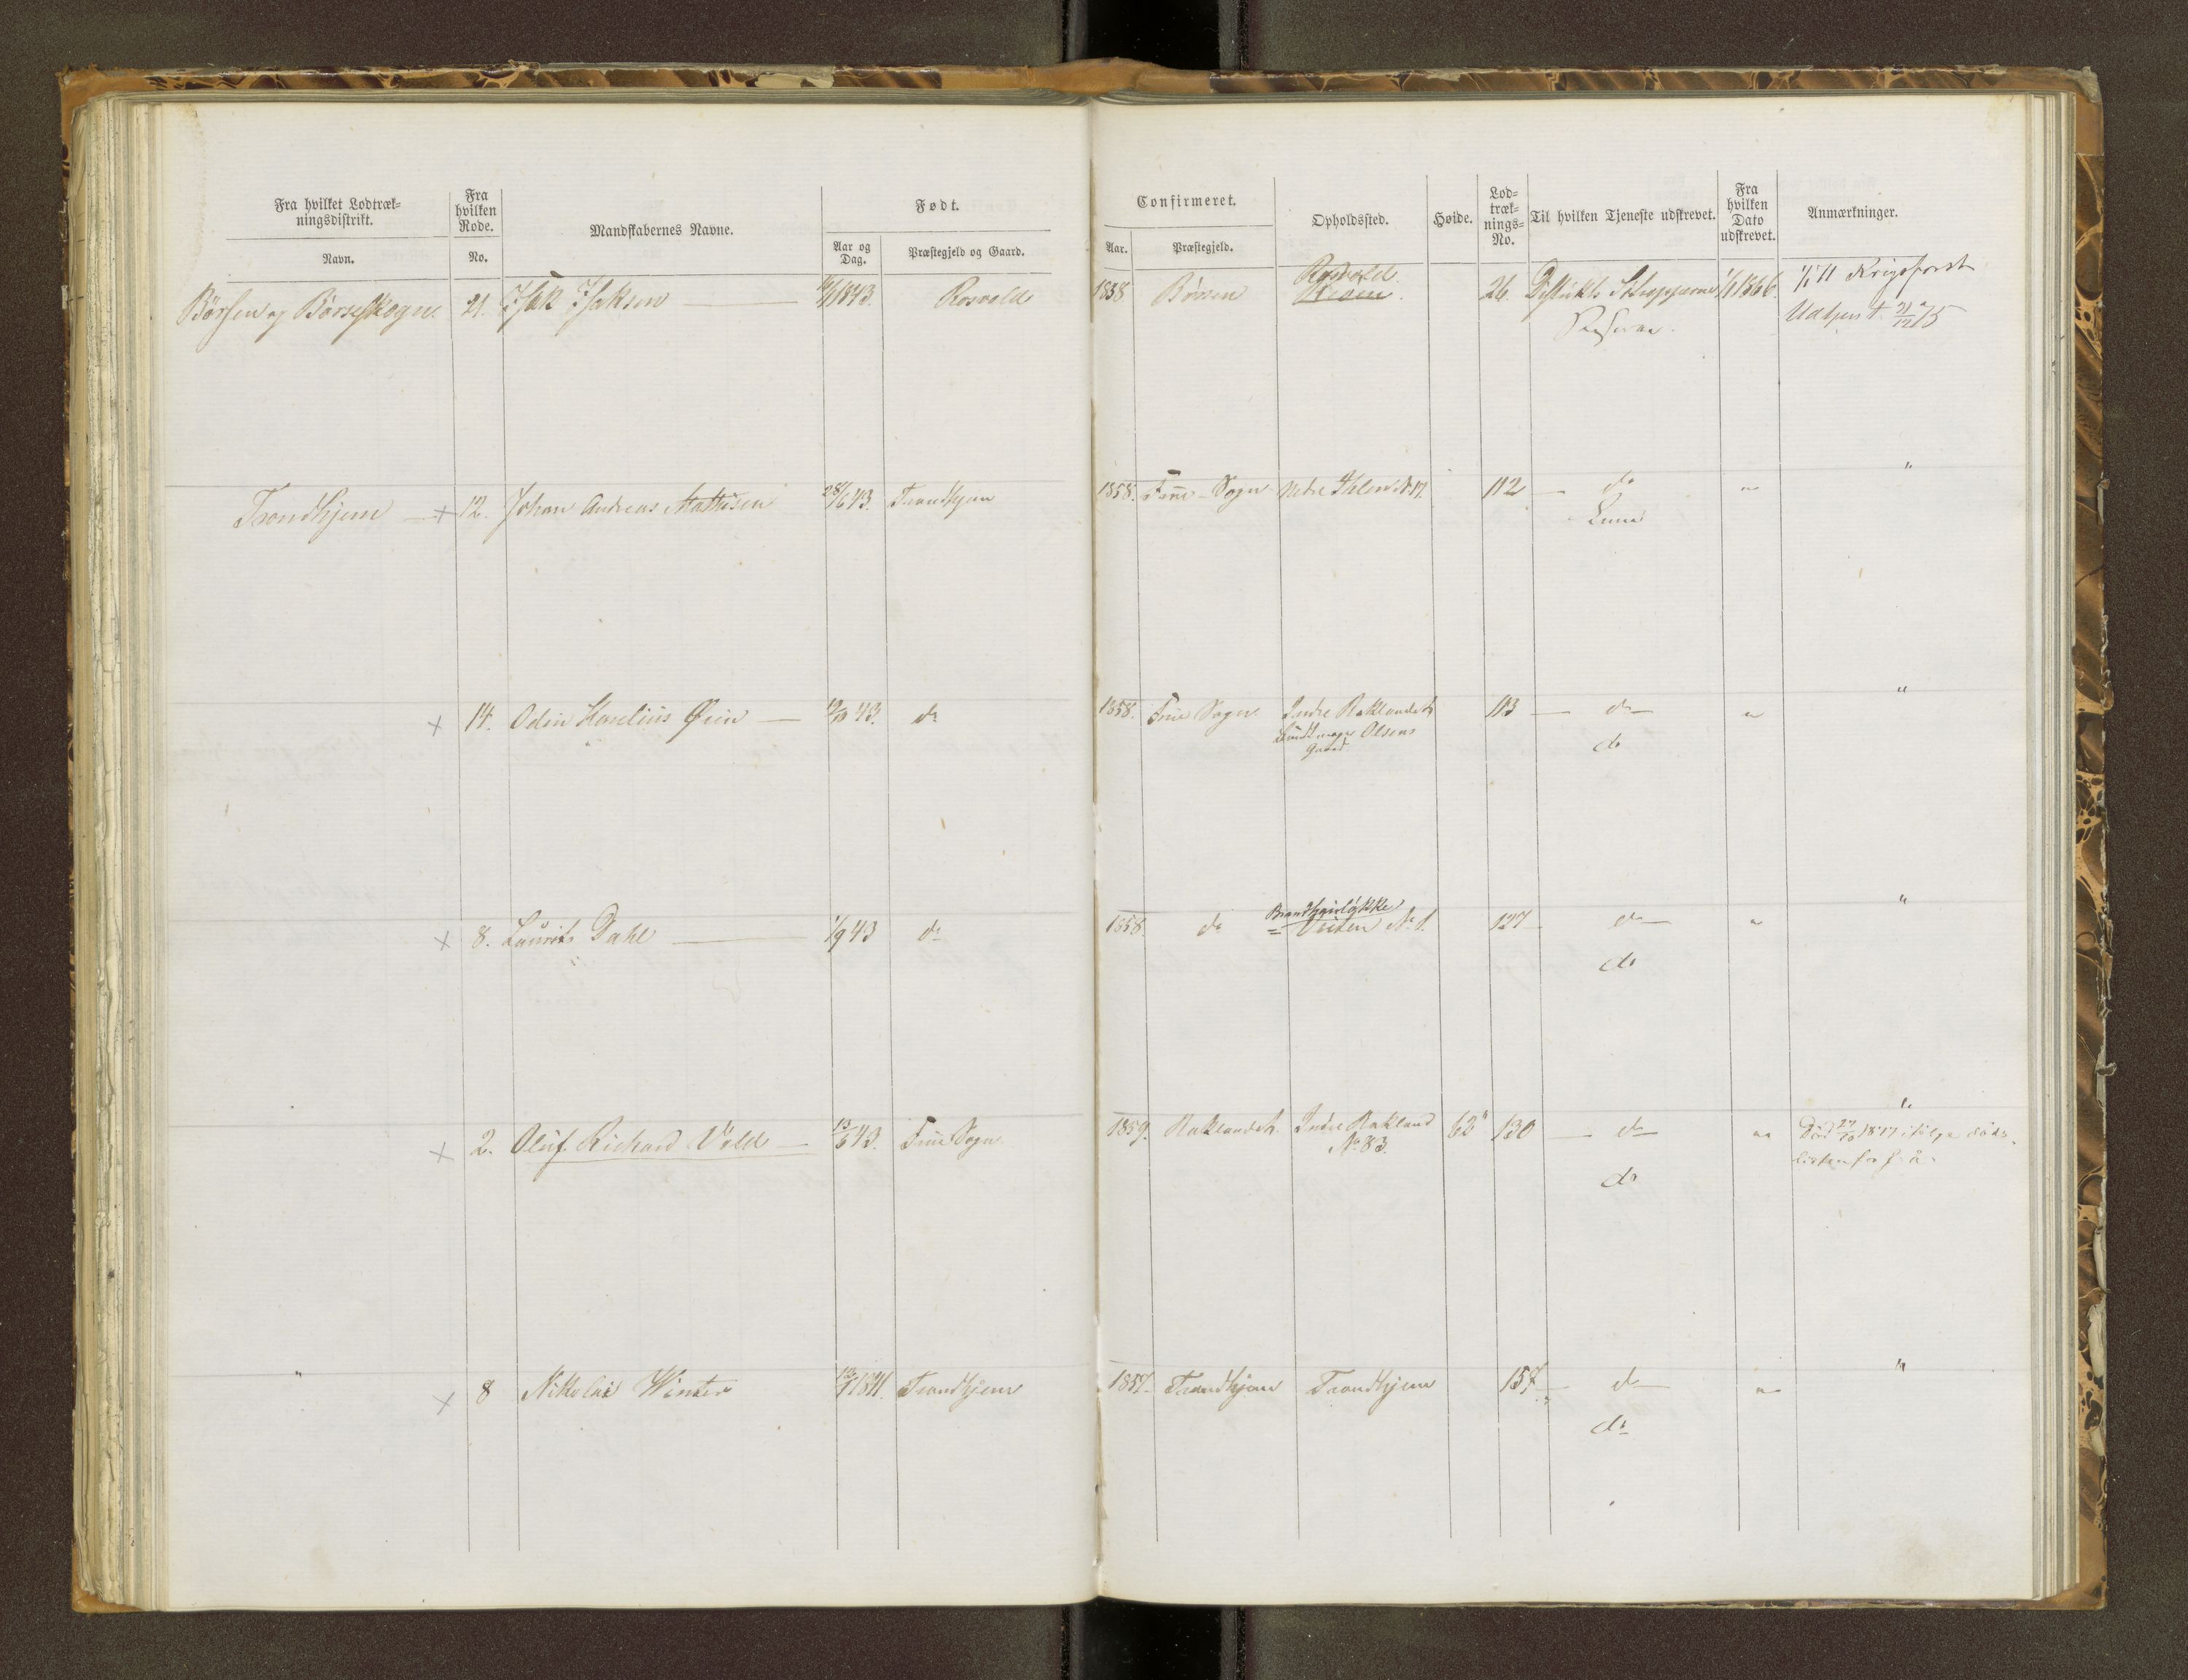 Fra hvilket Lodtræk-
ningsdistrikt.
Navn.
Fra
hvilken
Rode.
No.
Mandskabernes Navne.
Født.
Aar og
Dag.
Præstegjeld og Gaard.
Confirmeret.
Aar.
Præstegjeld.
Opholdssted.
Høide.
Lod-
træk-
nings-
No.
Til hvilken Tjeneste udskrevet.
Fra
hvilken
Dato
udskrevet.
Anmærkninger.
Børsen og Børseskogn. 21. Isak Isaksen 1843. Rosvold 1858 Børsen Rosvold 26. Distrikts Tropperne 1/1 1866. 1/1 71 Krigsforst
Udtjent 31/12 75
Trondhjem + 12. Johan Andreas Mathisen 28/6 43. Trondhjem 1858. Frue Sogn Nedre Ihlen 112 — do " "
Linie
+ 14. Odin Kornelius Øien — 43. do 1858. Frue Sogn Indre Baklandet 113 — do " "
Olsens do
Gaard
+ 8. Laurits Dahl — 1/9 43 do 1858. do Veiten No 1. 127 do " "
do
+ 2. Oluf Richard Vold — 13/6 43. Frue Sogn 1859. Baklandet. Indre Bakland 62" 130 — do " "
No 83. Død
do
" + 8 Nikolai Winter 1841. Trondhjem 1857. Trondhjem Trondhjem 157 — do " "
do